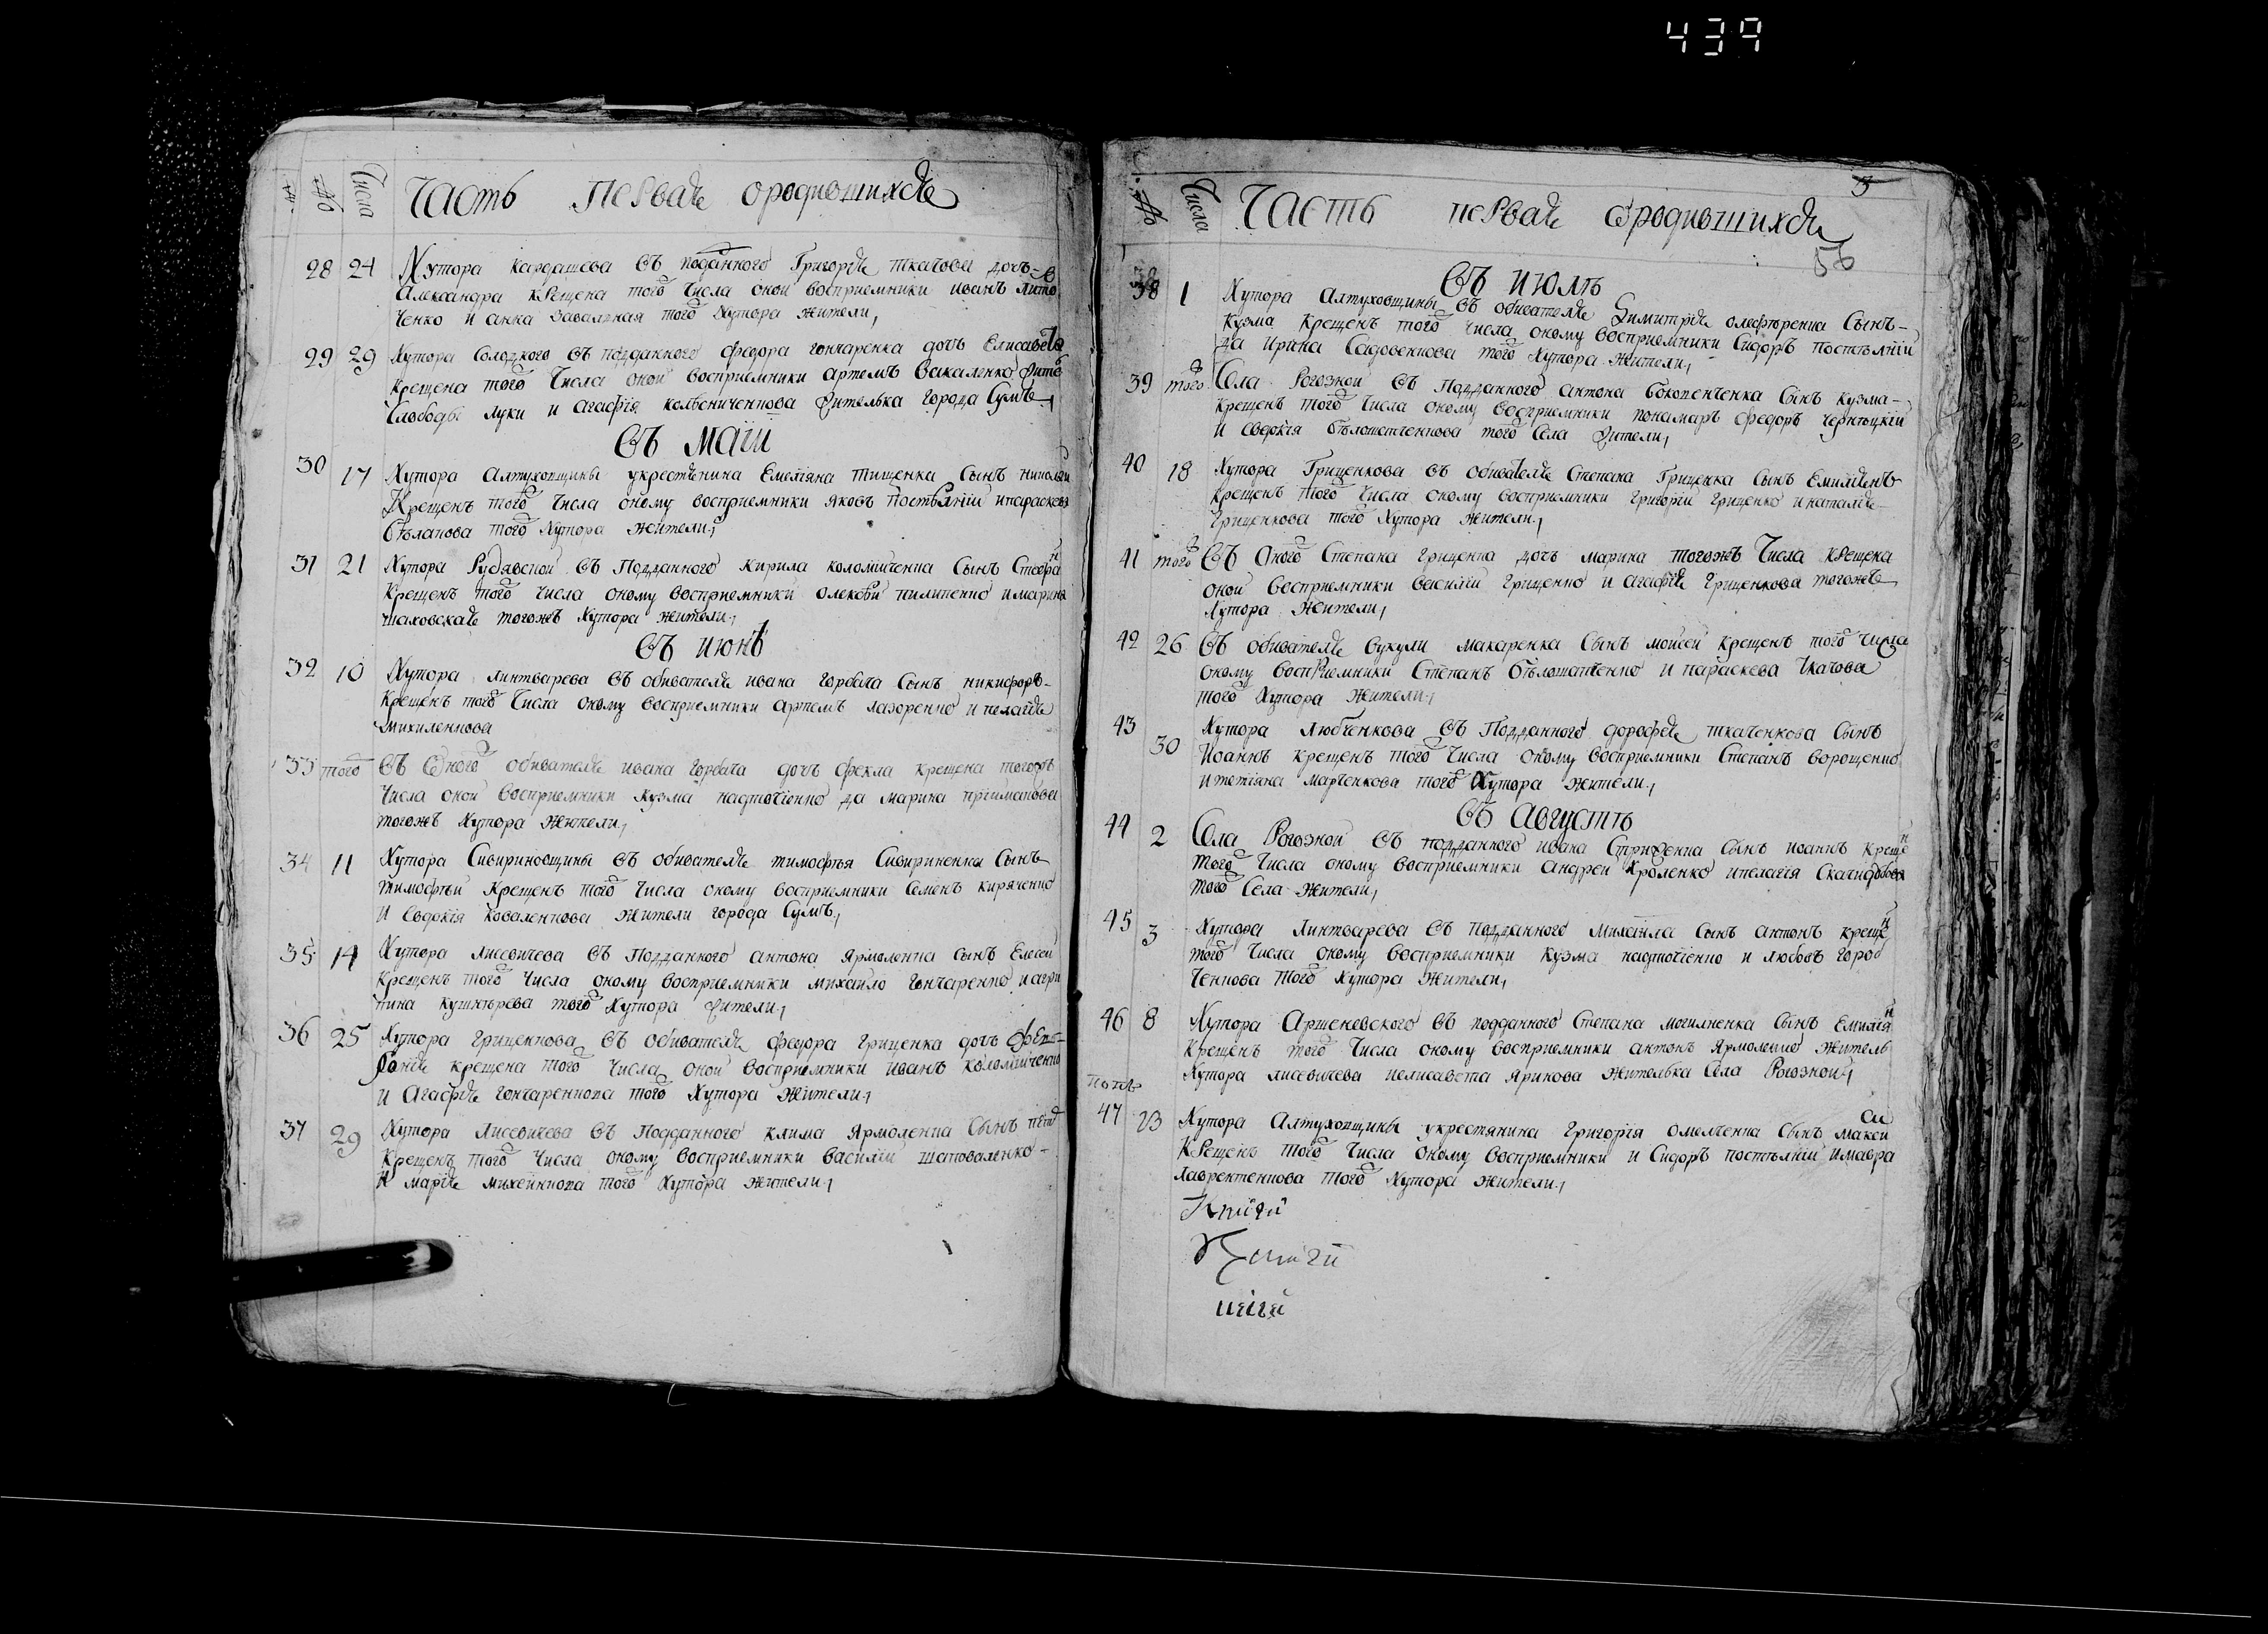 439
№ Числа Часть первая о родившихся
28 24 Хутора Кардашева въ поданного Григорія Ткачова дочь
Александра крещена того числа оной восприемники иванъ Лито
ченко и анна Завалнная того Хутора жители,
29 29 Хутора Солодкого въ подданного федора гончаренка дочь Елисавета
Крещена того числа оной восприемники артемъ Вакаленко жите
Слободы луки и агафія жителька города Сумъ,
въ маїи
30 17 Хутора Алтуховщины укрестянина Емеліяна Тищенка Сынъ николай
Крещенъ того числа оному восприемники яковъ Постѣлній ипараскева
Бѣлапова того Хутора жители,
31 21 Хутора Рудявской въ Подданного Кирила коломійченка Сынъ Стефанъ
Крещенъ того числа оному восприемники олексѣй пилипенко имарина
шаховская тогожъ Хутора жители,
въ июнѣ
32 10 Хутора линтварева въ обивателя ивана горбача Сынъ никифоръ
Крещенъ того числа оному восприемники артемъ лазоренко и пелагія
михиленкова
33 того въ Оного обивателя ивана горбача дочь фекла крещена тогожъ
числа оной восприемники Кузма надточіенко да марина пріиматова
тогожъ Хутора жители,
34 11 Хутора Сивириновщины въ обивателя тимофѣя Сивириненка Сынъ
тимофѣй Крещенъ того числа оному восприемники Семенъ киряченко
И Евдокія коваленкова жители города Сумъ,
35 14 Хутора лисевичева въ Подданного антона Ярмоленка сынъ Елесей
Крещенъ того числа оному восприемники михайло гончаренко и агри
пина кушнѣрева того Хутора жители,
36 25 Хутора гриценкова въ обивателя федора гриценка дочь фев
ронія крещена того числа оной восприемники иванъ коломійченко
и Агафія гончаренкова того Хутора жители,
37 29 Хутора Лисевичева въ Подданного клима Ярмоленка Сынъ петр
Крещенъ того числа оному восприемники василій шаповаленко
И марія михейнкова того Хутора жители,
№ Числа Часть первая о родившихся
56
въ июлѣ
38 1 Хутора Алтуховщины въ обивателя Димитрія олефѣренка Сынъ
Кузма Крещенъ того числа оному восприемники Сидоръ постѣлній
да Ирина Садовенкова того Хутора жители,
39 того Села Рогозной въ Подданного антона Сынъ Кузма
Крещенъ того числа оному восприемники понамаръ федоръ чернѣцкій
и Евдокія того Села жители,
40 18 Хутора Гриценкова въ обивателя Степана Гриценка Сынъ Емиліянъ
Крещенъ того числа оному восприемники григорій гриценко инаталія
гриценкова того Хутора жители,
41 того въ Оного Степана гриценка дочь марина тогожъ числа крещена
оной восприемники василій гриценко и агафія гриценкова тогожъ
Хутора жители,
42 26 въ обивателя вукули макаренка Сынъ мойсей Крещенъ того числа
оному восприемники Степанъ и параскева Ткачова
того Хутора жители,
43 30 Хутора любченкова въ Подданного дорофея ткаченкова Сынъ
Иоаннъ крещенъ того числа оному восприемники Степанъ ворощенко
итетіяна марченкова того Хутора жители,
въ августѣ
44 2 Села Рогозной въ подданного ивана Сынъ иоаннъ крещенъ
того числа оному восприемники Андрей Хроленко ипелагія
того Села жители,
45 3 Хутора Линтварева въ подданного михайла сынъ антонъ крещенъ
того числа оному восприемники кузма надточіенко и любовъ горб
ченкова того Хутора жители,
46 8 Хутора Аршеневского въ подданного Степана могилненка Сынъ Емиліянъ
Крещенъ того числа оному восприемники антонъ Ярмоленко житель
Хутора лисевичева иелисавета ярикова жителька Села Рогозной,
47 23 Хутора Алтуховщины укрестянина григорія омелченка Сынъ максимъ
Крещенъ того числа оному восприемники и Сидоръ постѣлній имавра
лаврентенкова того Хутора жители,
Книги